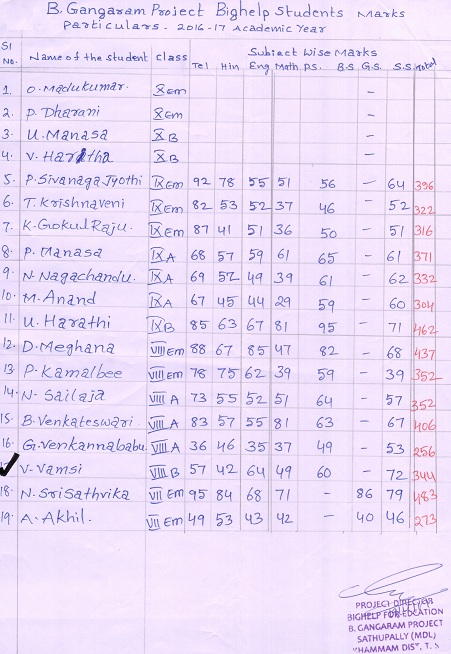 B. Gangaram Project Bighelp Students Marks
Particulars. 2016-17 Academic Year
Sl No. Name of the student Class Subject Wise Marks
Tel Hin Eng Math PS. B.S G.S. S.S Total
1. O. Madukumar. X Em -
2. P. Dharani X Em -
3. U. Manasa X B -
4. V. Haritha X B -
5. P. Sivanaga Jyothi IX Em 92 78 55 51 56 - 64 396
6. T. Krishnaveni IX Em 82 53 52 37 46 - 52 322
7. K. Gokul Raju. IX Em 87 41 51 36 50 - 51 316
8. P. Manasa IX A 68 57 59 61 65 - 61 371
9. N. Nagachandu. IX A 69 52 49 39 61 - 62 332
10. M. Anand IX A 67 45 44 29 59 - 60 304
11. U. Harathi IX B 85 63 67 81 95 - 71 462
12. D. Meghana VIII Em 88 67 85 47 82 - 68 437
13. P. Kamalbee VIII Em 78 75 62 39 59 - 39 352
14. N. Sailaja VIII A 73 55 52 51 64 - 57 352
15. B. Venkateswari. VIII A 83 57 55 81 63 - 67 406
16. G. Venkannababu. VIII A 36 46 35 37 49 - 53 256
V. Vamsi VIII B 57 42 64 49 60 - 72 344
18. N. Sri Sathvika VII Em 95 84 68 71 - 86 79 483
19. A. Akhil. VII Em 49 53 43 42 - 40 46 273
PROJECT DIRECTOR
BIGHELP FOR EDCATION
B. GANGARAM PROJECT
SATHUPALLY (MDL)
KHAMMAM DIST, T. S